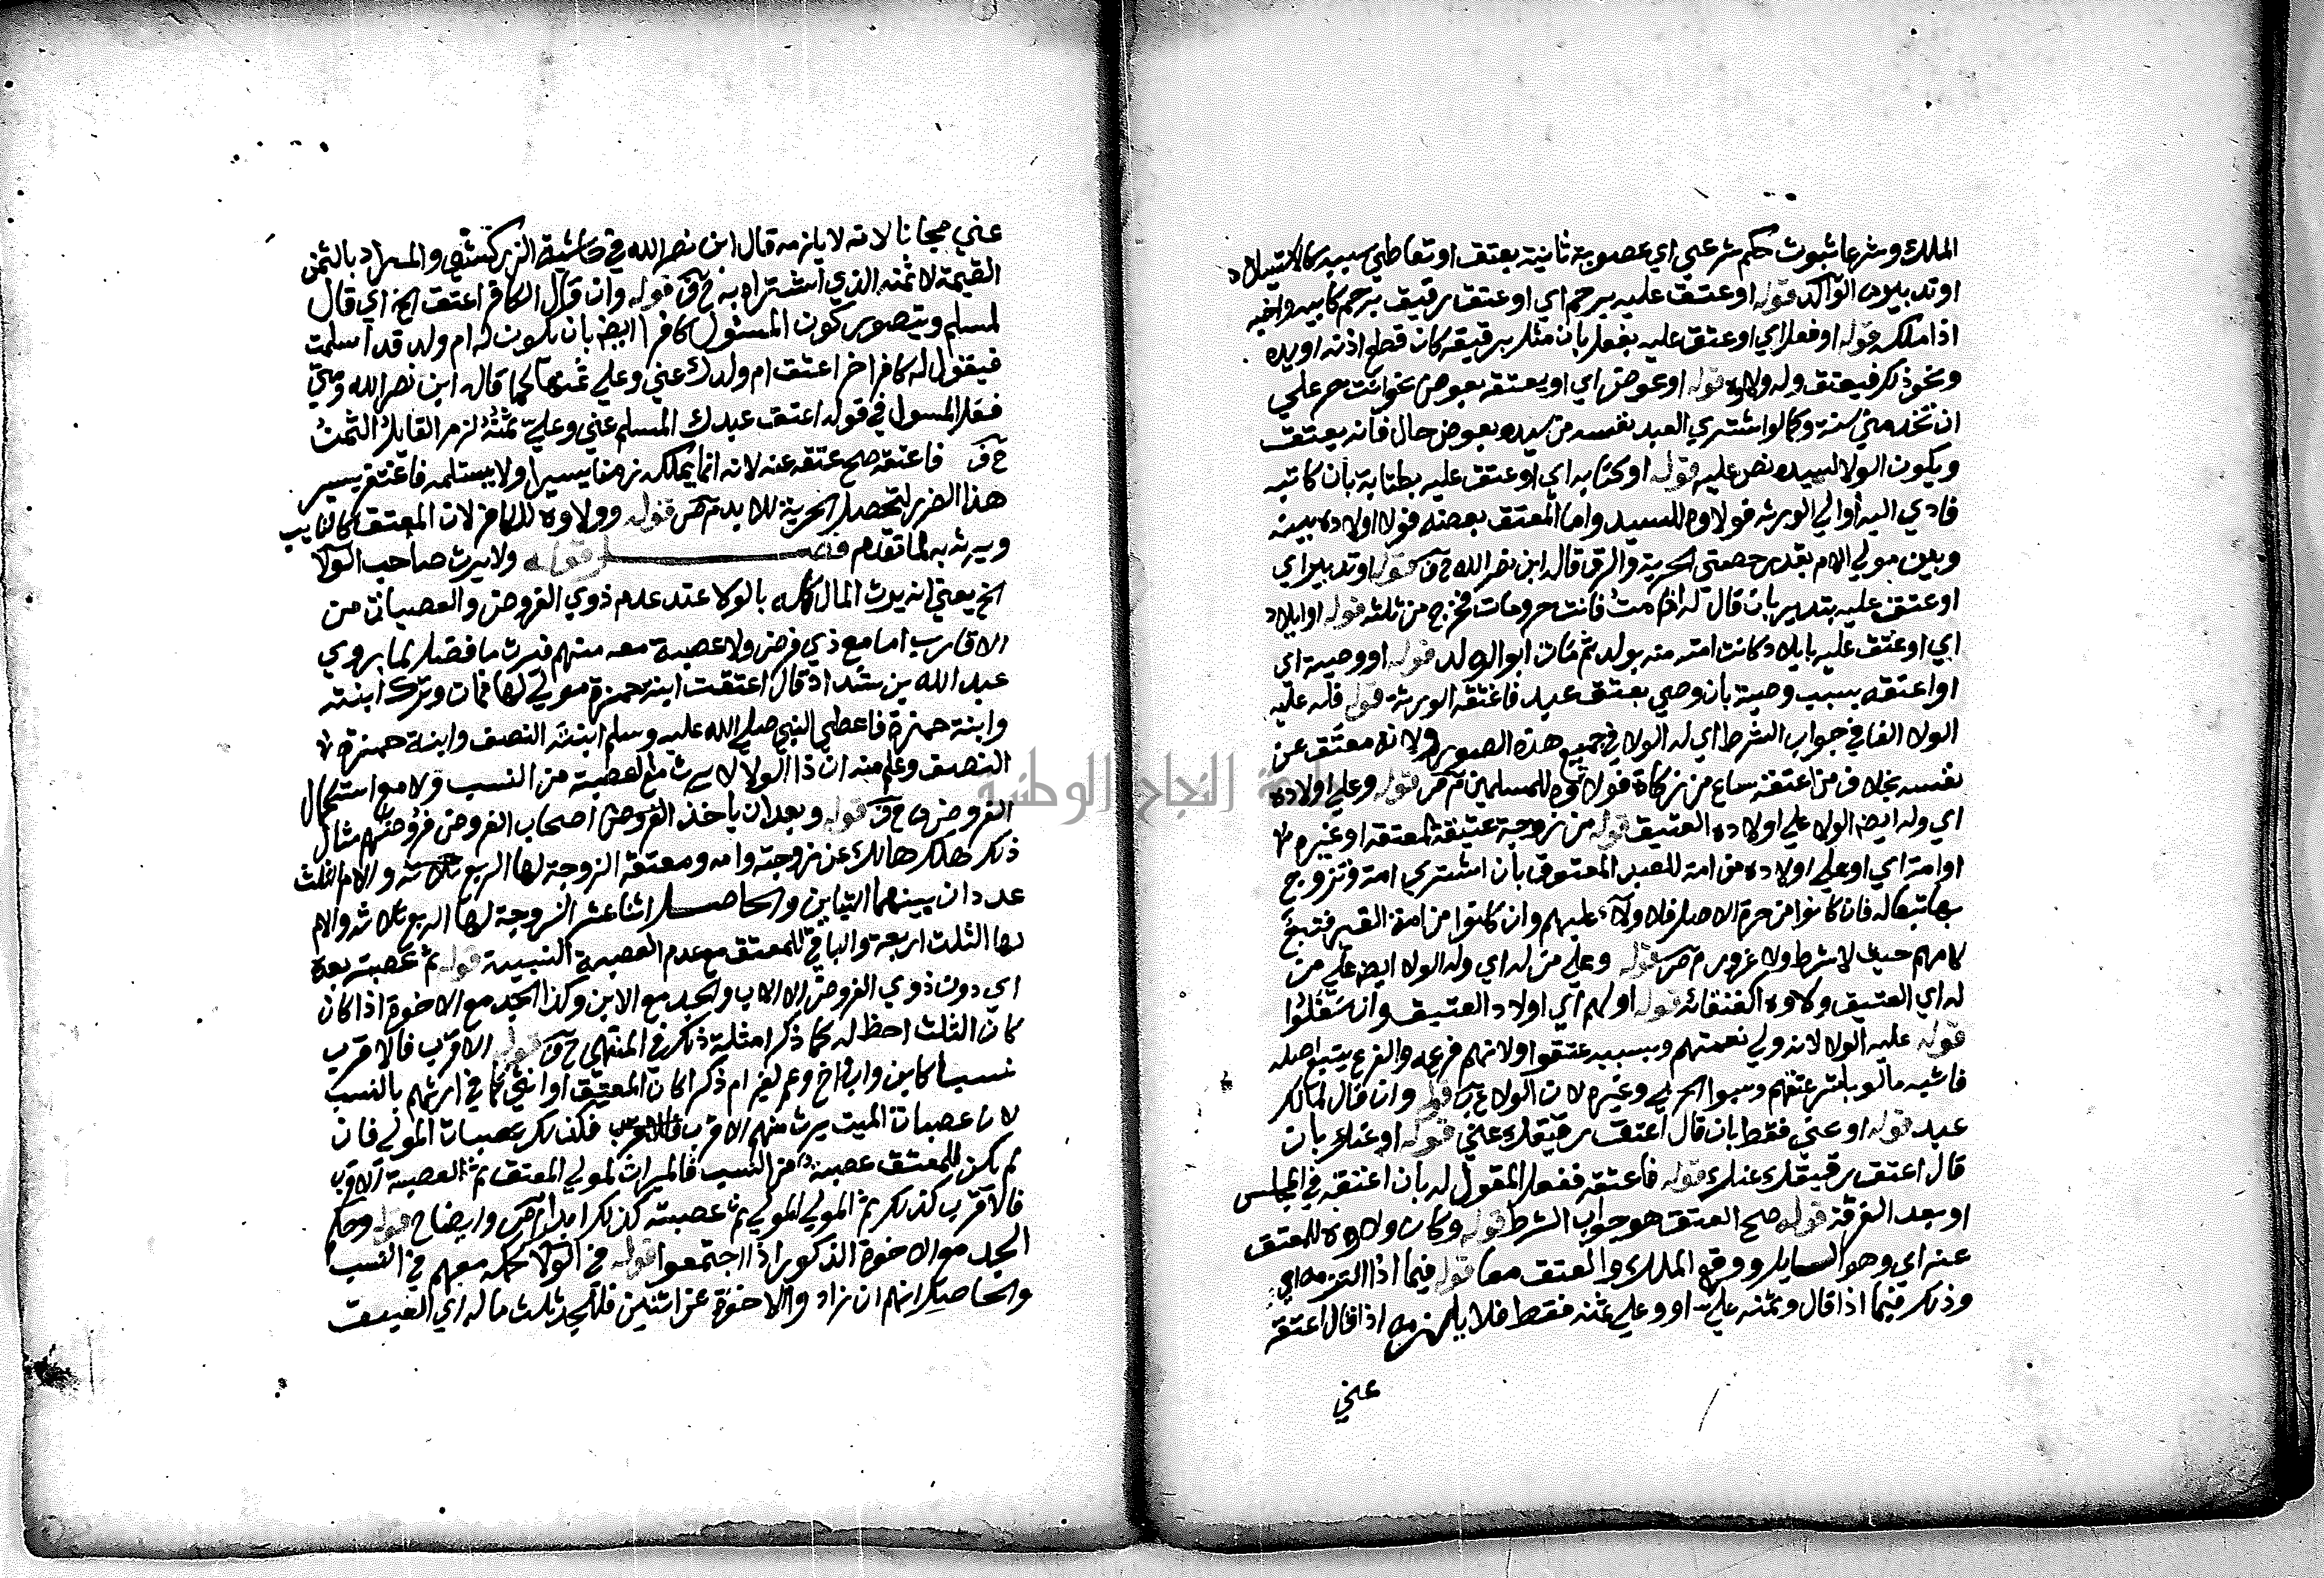 الملك وشرعا ثبوت حكم شرعي اي عصوبة ثانية بعتق او تعاطي سببه كالاستيلاد
او تدبير قوله او عتق عليه برحم اي او عتق رقيق برحم كابيه واخيه
اذا ملكه قوله او فعل اي او عتق عليه بفعل بان مثل برقيقه كان قطع اذنه او يده
ونحو ذلك فيعتق وله ولاوه قوله او عوض اي او يعتقه بعوض نحو انت حر علي
ان تخدمني سنة وكما لو اشتري العبد نفسه من سيده بعوض حال فانه يعتق
ويكون الولا لسيده نص عليه قوله او كتابه اي او عتق عليه بكتابة بان كاتبه
فادي اليه او الي الورثه فولاوه للسيد واما المعتق بعضه فولا اولاده بينه
وبين مولي الام بقدر حصتي الحرية والرق قاله ابن نصر الله ح ق قوله او تدبير اي
او عتق عليه بتدبير بان قال له اذا مت فانت حر ومات فخرج من ثلثه قوله او ايلاد
اي او عتق عليه بايلاد كانت امته منه بولد ثم مات ابو الولد قوله او وصية اي
او اعتقه بسبب وصية بان وصي بعتق عبد فاعتقه الورثة قوله فله عليه
الولا الفا في جواب الشرط اي له الولا في جميع هذه الصور ولانه معتق عن
نفسه بخلاف من اعتقه ساع من زكاة فولاوه للمسلمين م ص قوله وعلي اولاده
اي وله ايضا الولا علي اولاده العتيق قوله من زوجة عتيقة لمعتقه او غيره
او امة اي او علي اولاده من امة للعبد المعتوق بان اشتري امة وتزوج
بها تبعا له فان كانوا من حرة الاصل فلا ولاء عليهم وان كانوا من امة الغير فتبع
لامهم حيث لا شرط ولا غرور م ص قوله وعلي من له اي وله الولا ايضا علي من
له اي العتيق ولاوه كعتقائه قوله او لهم اي اولاد العتيق وان سفلوا
قوله عليه الولا لانه ولي نعمتهم وبسببه عتقوا ولانهم فرعه والفرع يتبع اصله
فاشبه ما لو باشر عتقهم وسوا الحربي وغيره لان الولا قوله وان قال لمالك
عبد قوله او عني فقط بان قال اعتق رقيقك عني قوله او عنك بان
قال اعتق رقيقك عنك قوله فاعتقه ففعل المقول له بان اعتقه في المجلس
او بعد الفرقة قوله صح العتق هو جواب الشرط قوله وكان ولاوه للمعتق
عنه اي وهو السايل ووقع الملك والعتق معا قوله فيما اذا التزمه اي
وذلك فيما اذا قال وثمنه علي او وعلي ثمنه فقط فلا يلزمه اذا قال اعتقه
عني
عني مجانا لانه لا يلزمه قال ابن نصر الله في حاشية الزركشي والمراد بالثمن
القيمة لا ثمنه الذي اشتراه به ح ق قوله وان قال الكافر اعتق الخ اي قال
لمسلم ويتصور كون المسئول كافرا ايضا بان يكون له ام ولد قد اسلمت
فيقول له كافر اخر اعتق ام ولدك عني وعلي ثمنها كما قاله ابن نصر الله ومتي
فعل المسول في قوله اعتق عبدك المسلم عني وعلي ثمنه لزم القايل الثمن
ح ق فاعتقه صح عتقه عنه لانه انما يملكه زمنا يسيرا ولا يستلمه فاغتفر يسير
هذا الضرر لتحصيل الحرية للابد م ص قوله وولاوه للكافر لان المعتق كالنايب
ويرث به لما تقدم فصل قوله ولا يرث صاحب الولا
الخ يعني انه يرث المال كله بالولا عند عدم ذوي الفروض والعصبات من
الاقارب اما مع ذي فرض ولا عصبة معه منهم فيرث ما فضل لما روي
عبد الله بن شداد قال اعتقت ابنة حمزة مولي لها فمات وترك ابنته
وابنة حمزة فاعطي النبي صلي الله عليه وسلم ابنته النصف وابنة حمزة
النصف وعلم منه ان ذا الولا لا يرث مع العصبة من النسب ولا مع استكمال
الفروض ح ق قوله وبعد ان ياخذ الفروض اصحاب الفروض فروضهم مثال
ذلك هلك هالك عن زوجة وام ومعتقة الزوجة لها الربع ثلاثة والام الثلث
عددان بينهما التباين والحاصل اثنا عشر الزوجة لها الربع ثلاثة والام
لها الثلث اربعة والباقي للمعتق مع عدم العصبة النسبية قوله ثم عصبته بعده
اي دون ذوي الفروض الا الاب والجد مع الابن وكذا الجد مع الاخوة اذا كان
كان الثلث احظ له كما ذكر امثلة ذلك في المنتهي ح ق قوله الاقرب فالاقرب
نسبا كابن واب واخ وعم لغير ام ذكرا كان المعتيق او انثي كما في ارثهم بالنسب
لان عصبات الميت يرث منهم الاقرب فالاقرب فكذلك عصبات المولي فان
لم يكن للمعتق عصبة من النسب فالميراث لمولي المعتق ثم العصبة الاقرب
فالاقرب كذلك ثم المولي المولي ثم عصبته كذلك ابدا م ص وايضاح قوله وحكم
الجد مع الاخوة الذكور اذا اجتمعوا قوله في الولا كحكمه معهم في النسب
والحاصل انهم ان زادوا الاخوة عن اثنين فللجد ثلث ماله اي العتيق
جامعة النجاح الوطنية